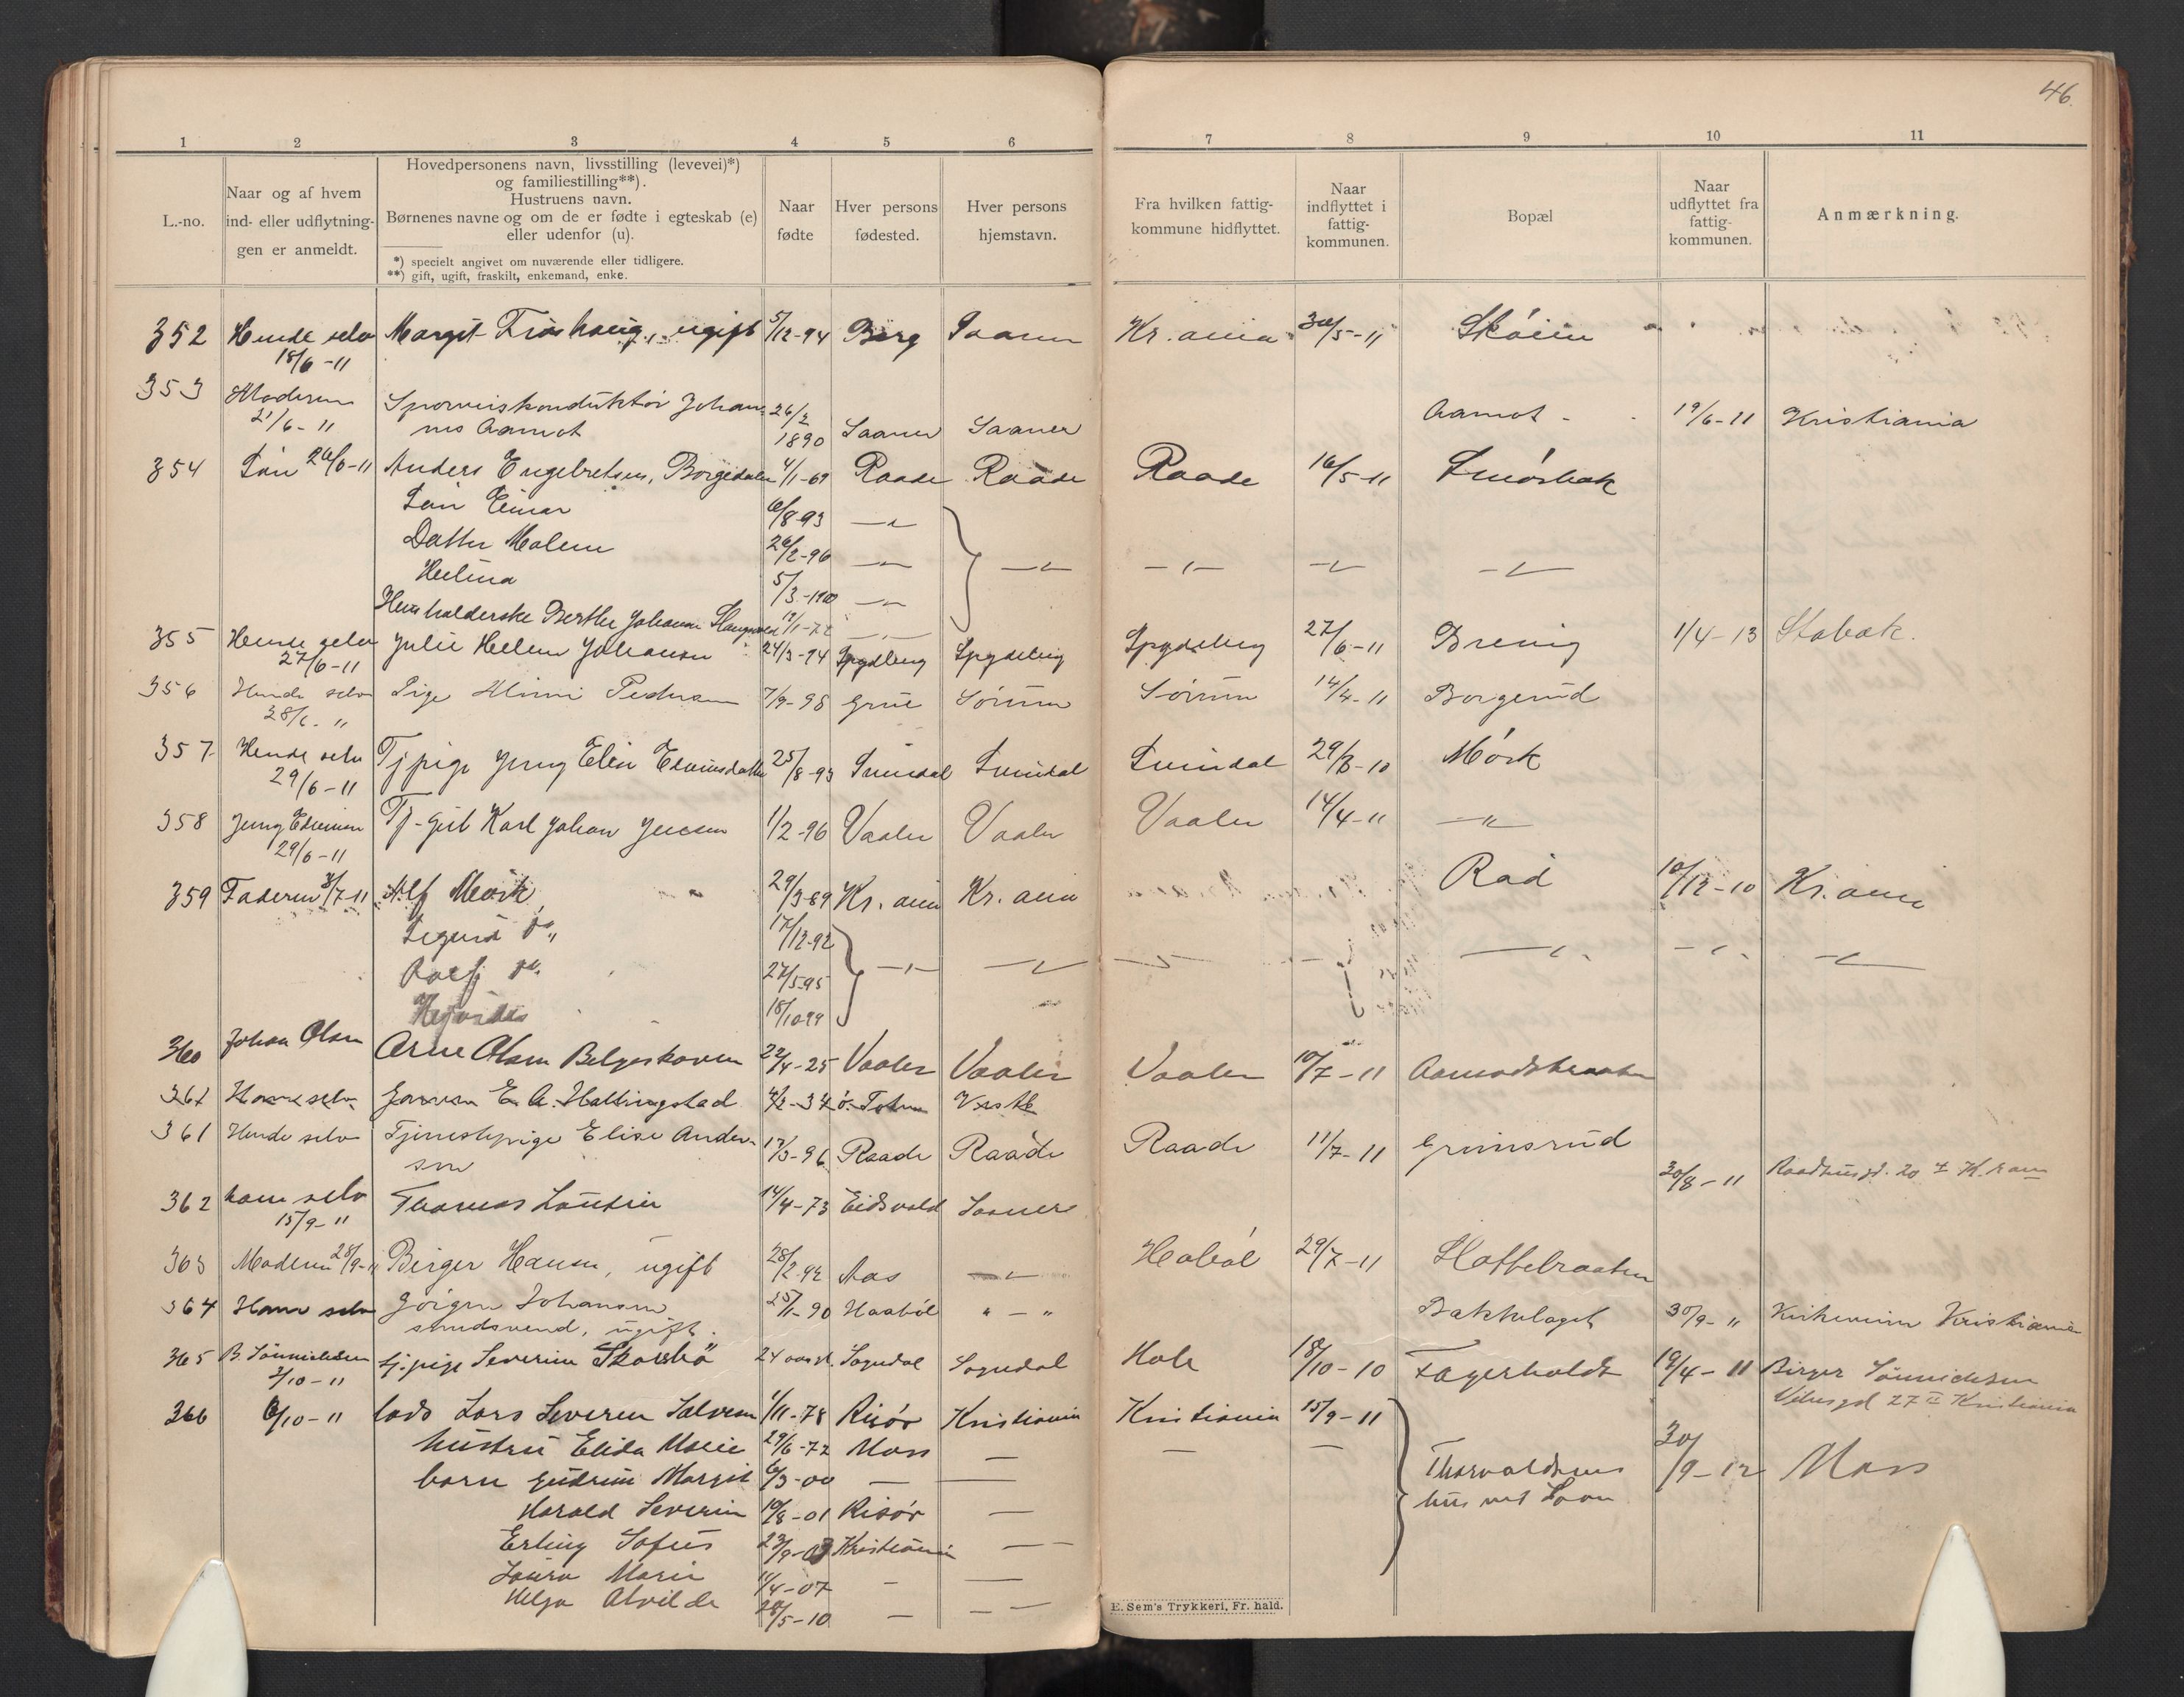 46.
1 2 3 4 5 6 7 8 9 10 11
L.-no.
Naar og af hvem
ind- eller udflytning-
gen er anmeldt.
Hovedpersonens navn, livsstilling (levevei)*)
og familiestilling**).
Hustruens navn.
Børnenes navne og om de er fødte i egteskab (e)
eller udenfor (u).
*) specielt angivet om nuværende eller tidligere.
**) gift, ugift, fraskilt, enkemand, enke.
Naar
fødte
Hver persons
fødested.
Hver persons
hjemstavn.
Fra hvilken fattig-
kommune hidflyttet.
Naar
indflyttet i
fattig-
kommunen.
Bopæl
Naar
udflyttet fra
fattig-
kommunen.
Anmærkning.
352 Hende selv Margit ugift 5/12-94 Berg Saaner Kr.ania 30/5-11 Skøien
18/6-11
353 Moderen Sporveiskonduktør Johan- 26/2 Aamot 19/6-11 Kristiania
21/6-11 nes Aamot 1890 Saaner Saaner
354 Søn 26/6-11 Anders Engelretsen, Borgedalen 4/1-69 Raade Raade Raade 16/5-11 Smørbæk
Søn Einar 6/8-93 —„—
Datter Malene 26/2-96 —„— —„— —„— —„— —„—
Helina 5/3-1900 —„—
Husholderske Berthe Johanne 19/1-72 —„—
355 Hende selv Julie Helene Johansen 24/3-94 Spydeberg Spydeberg Spydeberg 27/6-11 Brevig 1/4-13 Stabæk.
27/6-11
356 Hende selv Pige Mimi Pedersen 7/9-98 Grue Sørum Sørum 14/4-11 Borgerud
28/6-„
357 Hende selv Tj pige Jenny Elin Edvinsdatter 25/8-93 Svindal Svindal Svindal 29/8-10 Mørk
29/6-11
358 Jenny Edvinsen Tj-gut Karl Johan Jensen 1/2-96 Vaaler Vaaler Vaaler 14/4-11 —„—
29/6-11
359 Faderen 3/7-11 Alf Mørk, 29/3-89 Kr.ania Kr.ania Rød 10/12-10 Kr.ania
Sigurd do„ 17/12-92
Rolf do„ 27/5-95 —„— —„— —„— —„— —„— —„—
18/10-99
360 Johan Olsen Arne Olsen Belgeskoven 22/4-25 Vaaler Vaaler Vaaler 10/7-11 Aamodtbraaten
361 Ham selv E. A. Hallingstad 4/2-34 ø. Toten
361 Hende selv Tjenestepige Elise Ander- 17/3-96 Raade Raade Raade 11/7-11 Grimsrud
sen
30/8-11 Raadhusgd. 20 I Kr.ania
362 ham selv Thomas 14/4-73 Eidsvold Saaner
15/9-11
363 Moderen 28/9-11 Birger Hansen, ugift 28/2-92 Aas —„— Hobøl 29/7-11 Staffelbraaten
364 Ham selv Jørgen Johansen 25/1-90 Haabøl „ — „ Bakkelaget 30/9-„ Kristiania
smedsvend, ugift.
365 B. Sønnichsen tj.pige Severine 24 aar Sogndal Sogndal Hole 18/10-10 Fagerholdt 19/4-11 Birger Sønnichsen
2/10-11 27 II Kristiania
366 6/10-11 lods Lars Severin Salvesen 1/11-78 Risør Kristiania Kristiania 15/9-11
hustru Elida Marie 29/6-72 Moss — — —
børn Gudrun Margit 6/3-00 — — Thorvaldsens 30/9-12 Moss
Harald Severin 10/8-01 Risør — hus ved Soon
Erling Sofus 23/9-03 Kristiania —
Laura Marie 11/4-07 — —
Helga Alvilde 28/5-10 — —
E. Sem's Trykkeri, Fr. hald.